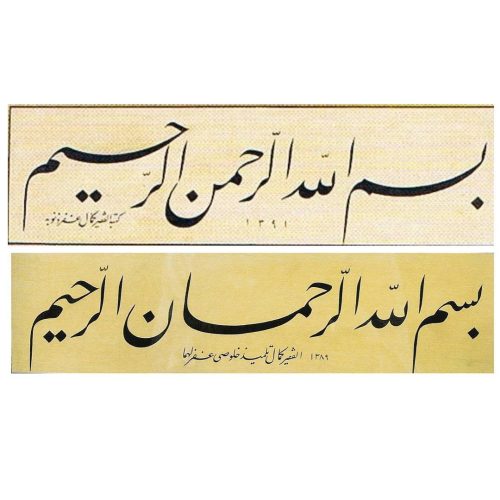 بسم الله الرّحمن الرّحيم
١٣٩١
كتبه الفقير كمال غفر ذنوبه
بسم الله الرّحمان الرّحيم
الفقير كمال تلميذ خلوصى غفر لهما ١٣٨٩